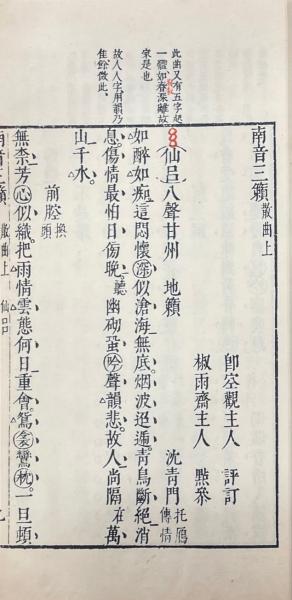 此曲又有五字起
一體如春深離故
家是也
故人人字用韻乃
佳餘倣此
南音三籟 散曲上
即空觀主人 評訂
椒雨齋主人 點參
仙呂八聲甘州 地籟 沈青門 托鴈傳情
如醉如痴這悶懷深似滄海無底烟波迢遞青鳥斷絕消
息傷情最怕日傍晚聽幽砌蛩吟聲韻悲故人尚隔在萬
山千水
前腔 換頭
無柰芳心似織把雨情雲態何日重會鴛衾鸞枕一旦頓
南音三籟 散曲上 仙呂